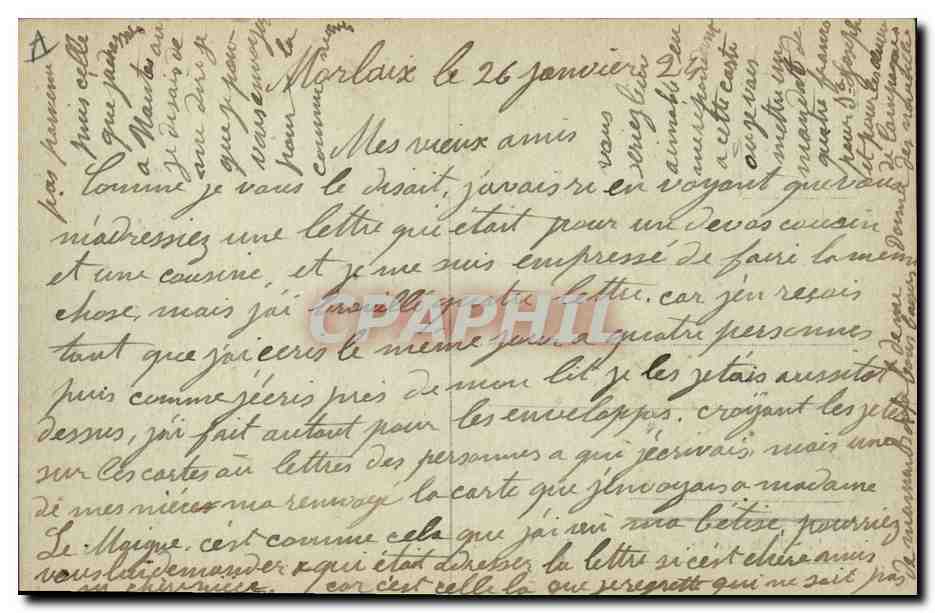 Morlaix le 26 janvier 25
Mes vieux amis
Comme je vous le disait, j'avais ri en voyant que vous
m'adressiez une lettre qui était pour un de vos cousin
et une cousine, et je me suis empressé de faire la même
chose, mais j'ai brouillé quatre lettre. car j'en reçois
tant que j'ai ecris le même jour a quatre personnes
puis comme j'écris près de mon lit je les jetais aussitot
dessus, j'ai fait autant pour les enveloppes. croyant les jeter
sur les cartes ou lettres des personnes a qui j'écrivais, mais une
de mes nièces m'a renvoyé la carte que j'envoyais a madame
Le Moigne. c'est comme cela que j'ai vu ma bêtise, pourriez
vous lui demander a qui était adresser la lettre si c'est chère amis
ou chère nièce. car c'est celle là que je regrette qui ne soit pas
pas parvenu
puis celle
que j'ai
a Nantes ou
je disais de
que je
vous envoyer
pour la
vous
seriez bien
aimable en
me répondant
a cette carte
ou je vais
mettre un
mandat de
quatre francs
pour St Joseph
et pour les
de la
CPAPHIL